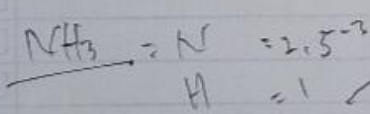 NH₃ = N = 2.5⁻³
H = 1